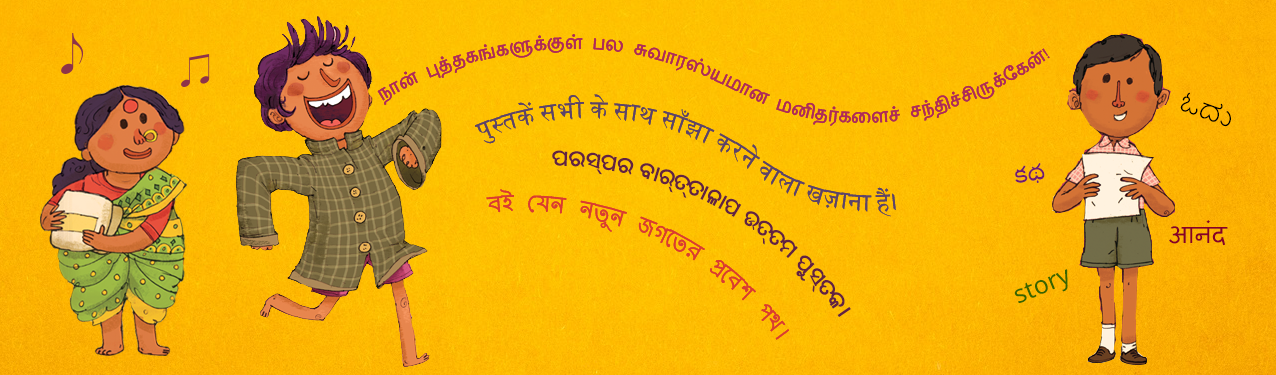 நான் புத்தகங்களுக்குள் பல சுவாரஸ்யமான மனிதர்களைச் சந்திச்சிருக்கேன்!
पुस्तकें सभी के साथ साँझा करने वाला खज़ाना हैं।
ପରସ୍ପର ବାର୍ତ୍ତାଳାପ ଉତ୍ତମ ପୁସ୍ତକ।
বই যেন নতুন জগতের প্রবেশ পথ।
ಓದು
కథ
आनंद
story